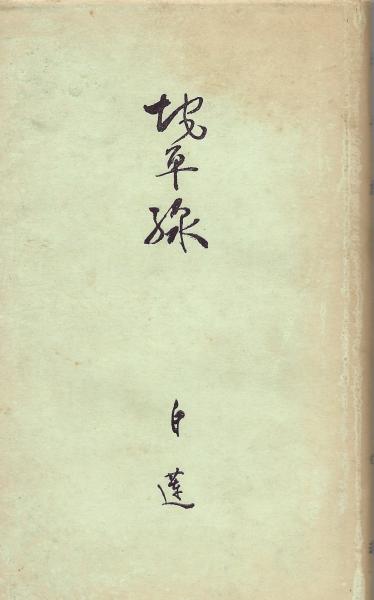 地平線
白蓮